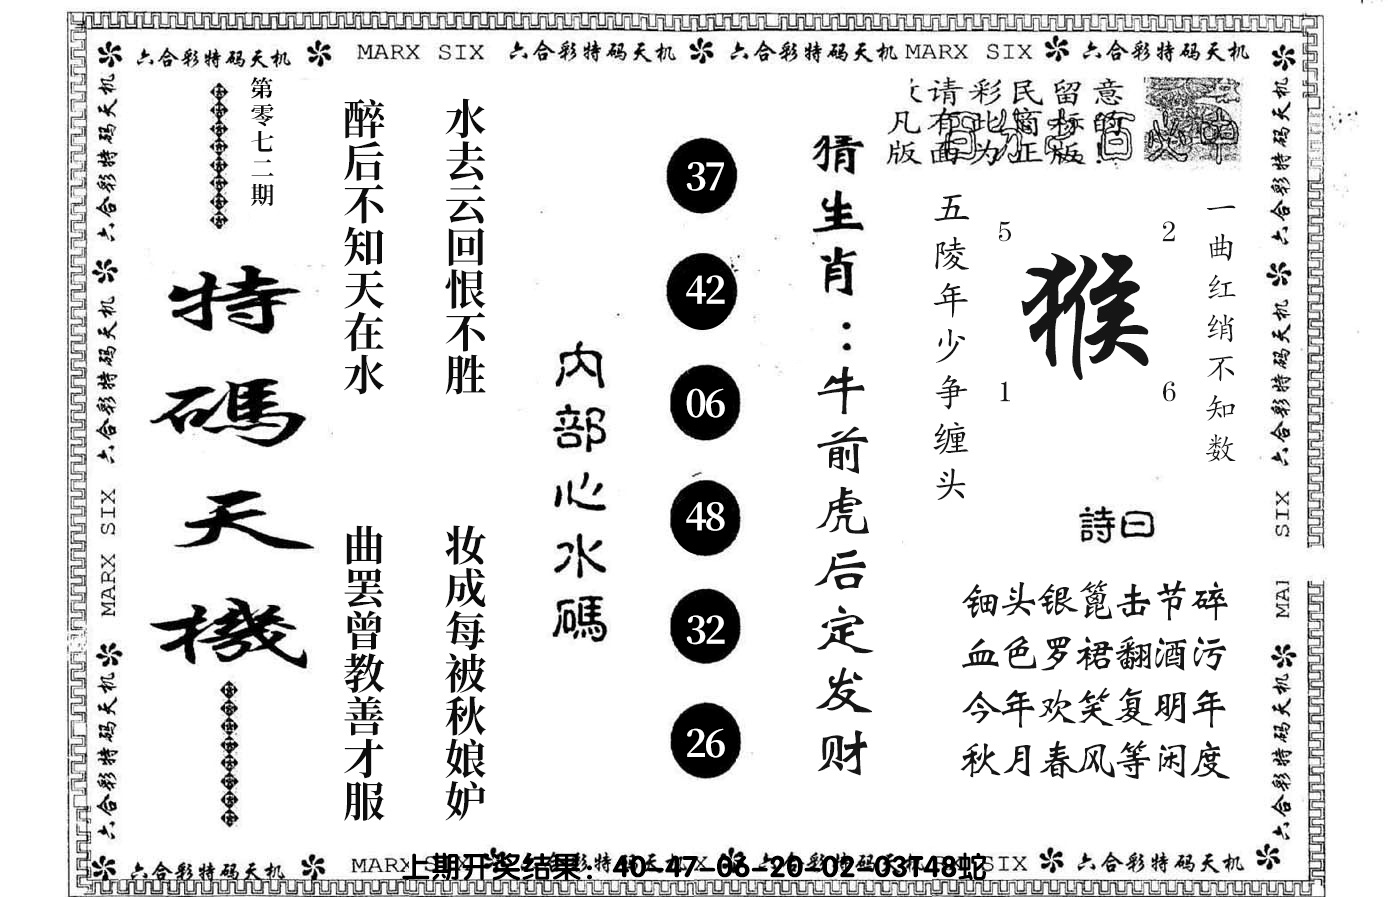 六合彩特码天机 MARX SIX 六合彩特码天机 六合彩特码天机 MARX SIX 六合彩特码天机
六合彩特码天机
六合彩特码天机
MARX SIX
六合彩特码天机
第零七二期
特碼天機
醉后不知天在水
曲罢曾教善才服
水去云回恨不胜
妆成每被秋娘妒
内部心水碼
37
42
06
48
32
26
猜生肖：牛前虎后定发财
请彩民留意
凡有此商标的
版面为正版！
五陵年少争缠头
5
2
猴
1
6
一曲红绡不知数
詩曰
钿头银篦击节碎
血色罗裙翻酒污
今年欢笑复明年
秋月春风等闲度
六合彩特码天机
六合彩特码天机
SIX
MAI
六合彩特码天机
六合彩特码天机 MARX SIX 六合彩特码天机 六合彩特码天机 SIX 六合彩特码天机
上期开奖结果：40-47-06-20-02-03T48蛇